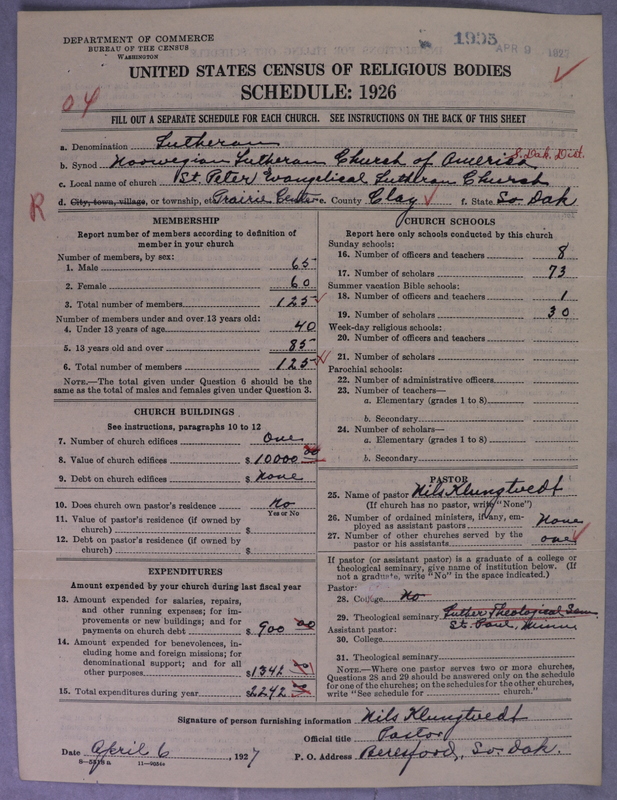 DEPARTMENT OF COMMERCE
BUREAU OF THE CENSUS
WASHINGTON
1995
APR 9 1927
UNITED STATES CENSUS OF RELIGIOUS BODIES
SCHEDULE: 1926
04
FILL OUT A SEPARATE SCHEDULE FOR EACH CHURCH. SEE INSTRUCTIONS ON THE BACK OF THIS SHEET
a. Denomination Lutheran
b. Synod Norwegian Lutheran Church of America S. Dak. Dist.
c. Local name of church St. Peter Evangelical Lutheran Church
d. City, town, village, or township, etc. Prairie Center e. County Clay f. State So. Dak
R
MEMBERSHIP
Report number of members according to definition of member in your church
Number of members, by sex:
1. Male 65
2. Female 60
3. Total number of members 125
Number of members under and over 13 years old:
4. Under 13 years of age 40
5. 13 years old and over 85
6. Total number of members 125
NOTE.—The total given under Question 6 should be the same as the total of males and females given under Question 3.
CHURCH BUILDINGS
See instructions, paragraphs 10 to 12
7. Number of church edifices One
8. Value of church edifices $ 10000 00
9. Debt on church edifices $ None
10. Does church own pastor's residence No
Yes or No
11. Value of pastor's residence (if owned by church) $
12. Debt on pastor's residence (if owned by church) $
EXPENDITURES
Amount expended by your church during last fiscal year
13. Amount expended for salaries, repairs, and other running expenses; for improvements or new buildings; and for payments on church debt $ 900 00
14. Amount expended for benevolences, including home and foreign missions; for denominational support; and for all other purposes $ 1342 00
15. Total expenditures during year $ 2242 00
CHURCH SCHOOLS
Report here only schools conducted by this church
Sunday schools:
16. Number of officers and teachers 8
17. Number of scholars 73
Summer vacation Bible schools:
18. Number of officers and teachers 1
19. Number of scholars 30
Week-day religious schools:
20. Number of officers and teachers
21. Number of scholars
Parochial schools:
22. Number of administrative officers
23. Number of teachers—
a. Elementary (grades 1 to 8)
b. Secondary
24. Number of scholars—
a. Elementary (grades 1 to 8)
b. Secondary
PASTOR
25. Name of pastor Nils Klungtvedt
(If church has no pastor, write "None")
26. Number of ordained ministers, if any, employed as assistant pastors None
27. Number of other churches served by the pastor or his assistants one
If pastor (or assistant pastor) is a graduate of a college or theological seminary, give name of institution below. (If not a graduate, write "No" in the space indicated.)
Pastor:
28. College No
29. Theological seminary Luther Theological Sem.
St. Paul, Minn
Assistant pastor:
30. College
31. Theological seminary
NOTE.—Where one pastor serves two or more churches, Questions 28 and 29 should be answered only on the schedule for one of the churches; on the schedules for the other churches, write "See schedule for church."
Signature of person furnishing information Nils Klungtvedt
Official title Pastor
Date April 6, 1927 P. O. Address Beresford, So. Dak.
8—5518 a 11—9054a